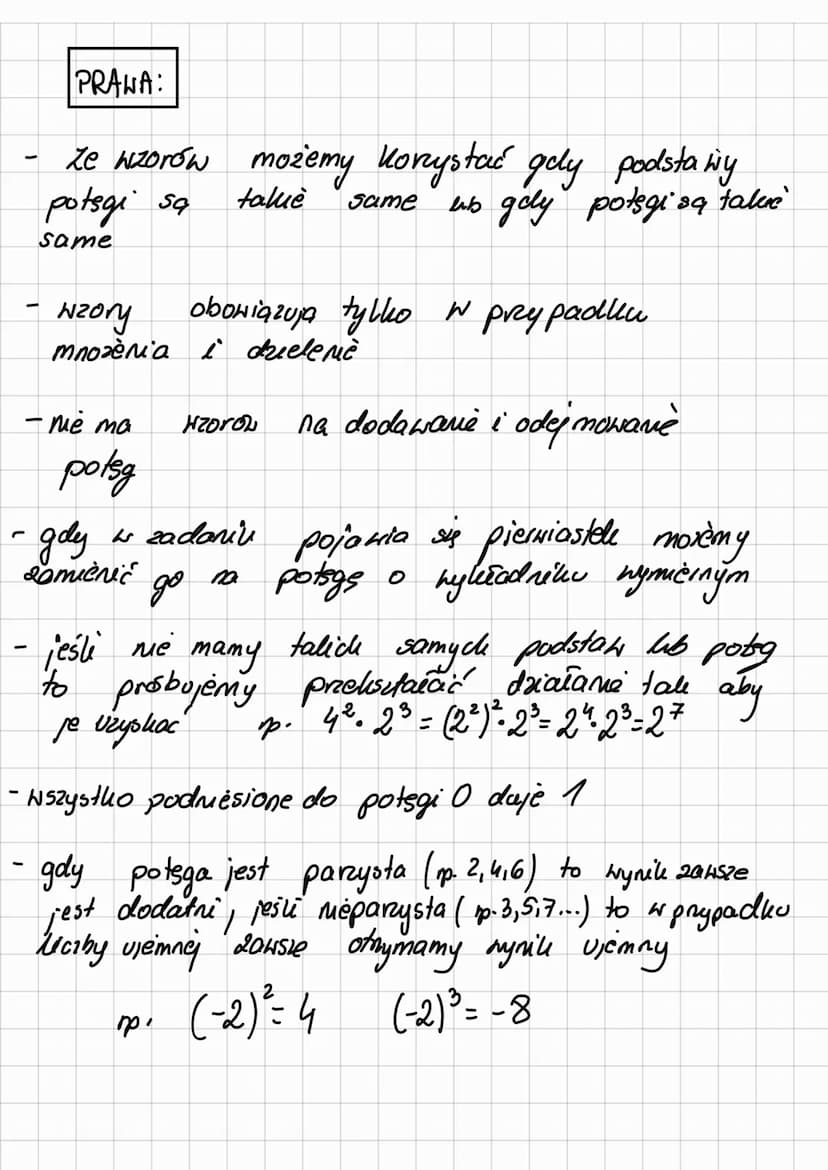 PRAWA:
- Ze wzorów możemy korzystać gdy podstawy
potęgi są takie same lub gdy potęgi są takie
same
- wzory obowiązują tylko w przypadku
mnożenia i dzielenie
- nie ma wzorów na dodawanie i odejmowanie
potęg
- gdy w zadaniu pojawia się pierwiastek możemy
zamienić go na potęgę o wykładniku wymiernym
- jeśli nie mamy takich samych podstaw lub potęg
to próbujemy przekształcić działanie tak aby
je uzyskać np. 4²·2³=(2²)²·2³=2⁴·2³=2⁷
- wszystko podniesione do potęgi 0 daje 1
- gdy potęga jest parzysta (np. 2,4,6) to wynik zawsze
jest dodatni, jeśli nieparzysta (np. 3,5,7...) to w przypadku
liczby ujemnej zawsze otrzymamy wynik ujemny
np. (-2)²=4 (-2)³=-8